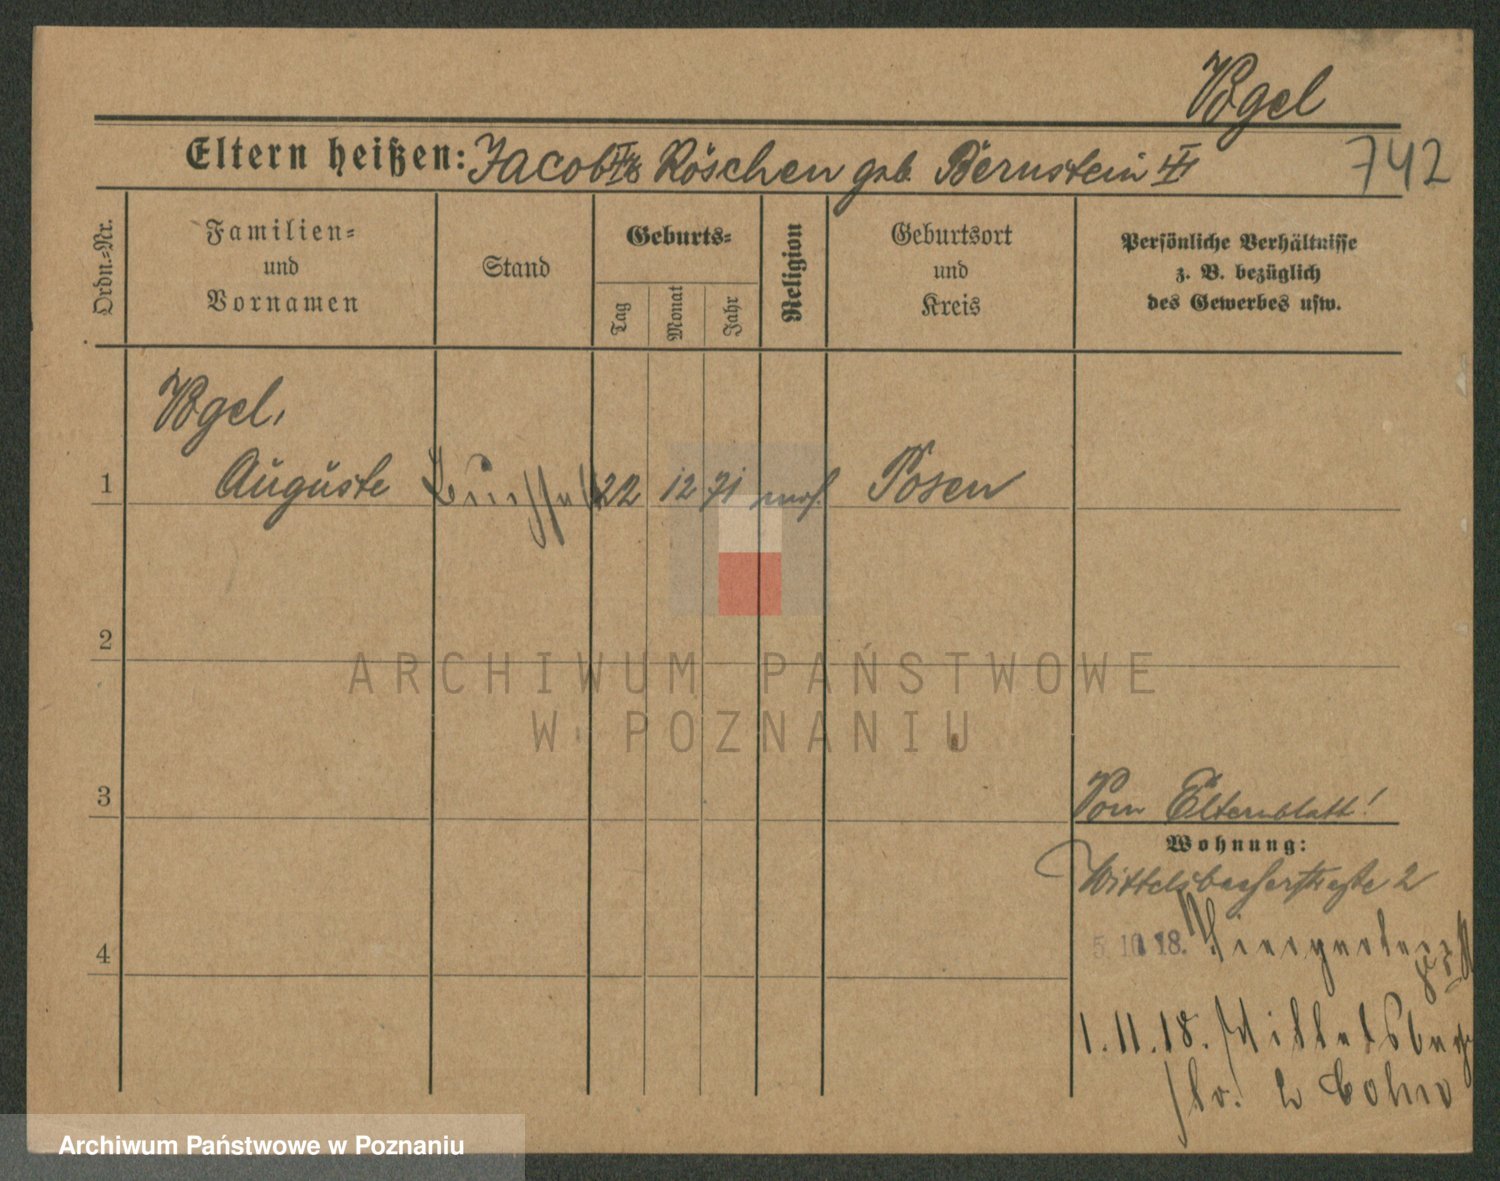 Vogel
Eltern heißen: Jacob Röschen geb. Bernstein
742
Ordn.-Nr.
Familien-
und
Vornamen
Stand
Geburts-
Tag
Monat
Jahr
Religion
Geburtsort
und
Kreis
Persönliche Verhältnisse
z. B. bezüglich
des Gewerbes usw.
Vogel,
1 Auguste 22 12 71 mos. Posen
2
ARCHIWUM PAŃSTWOWE
W POZNANIU
3
Vom Elternblatt!
Wohnung:
Wittelsbacherstraße 2
4
5. 10. 18.
1. 11. 18. Wittelsbach
str. 2 Cohn
Archiwum Państwowe w Poznaniu